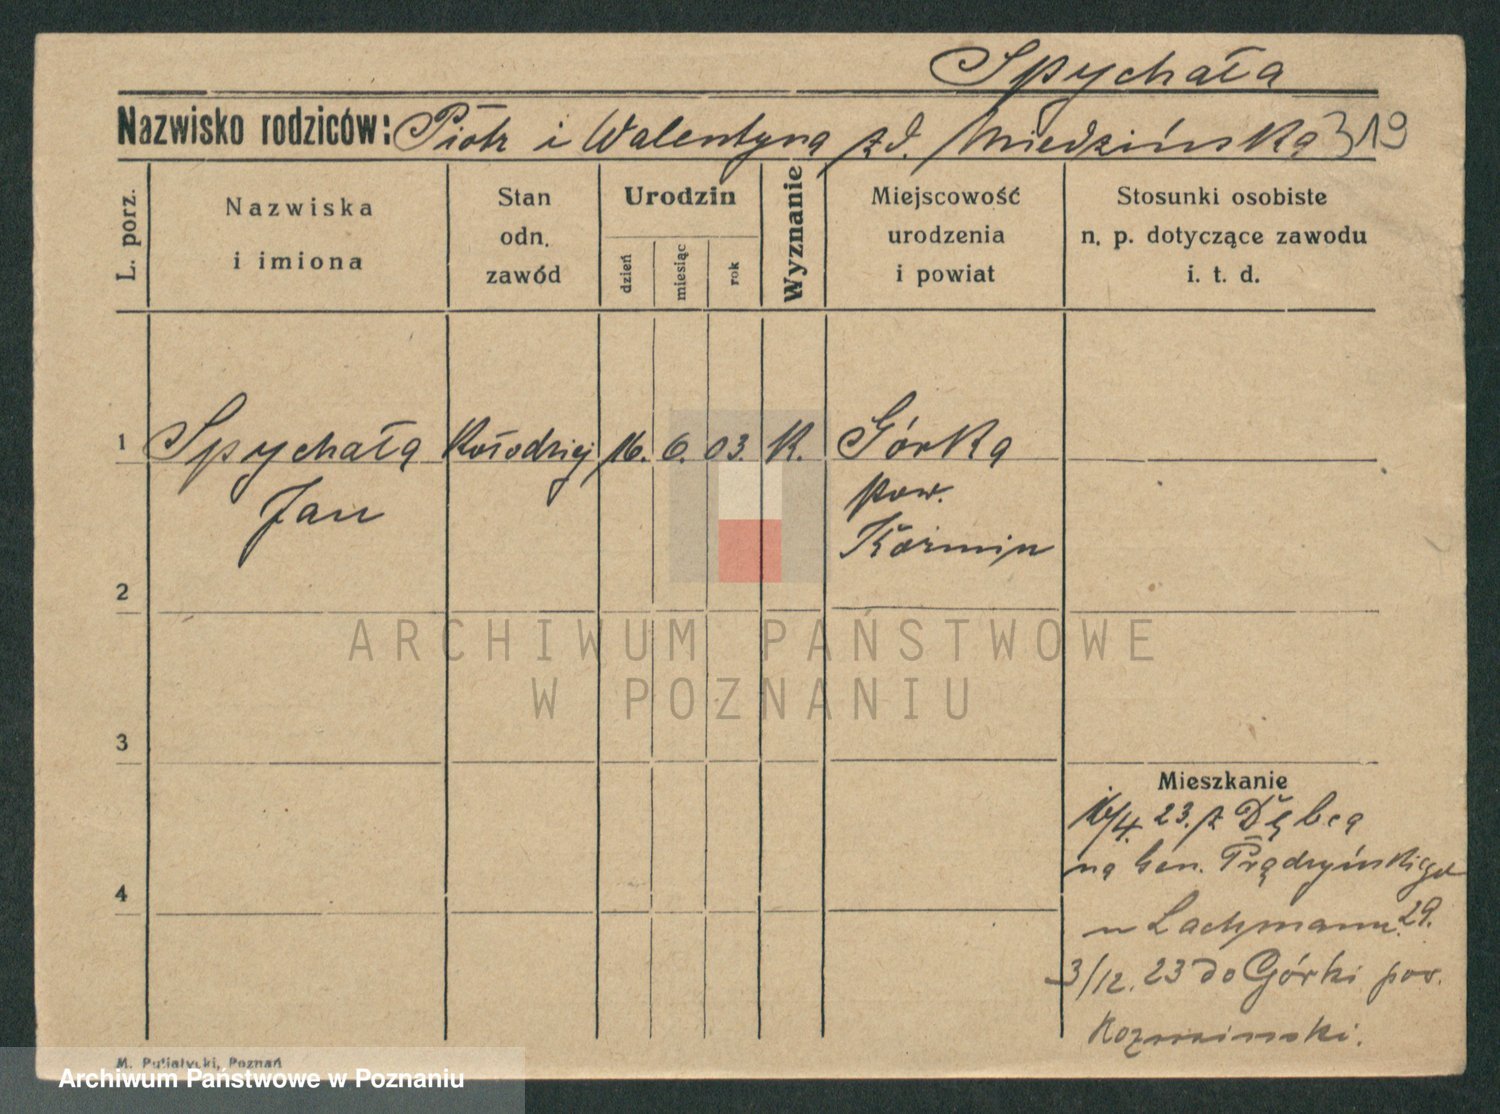 Spychała
Nazwisko rodziców: Piotr i Walentyna zd. Miedzińska 319
L. porz.
Nazwiska
i imiona
Stan
odn.
zawód
Urodzin
dzień
miesiąc
rok
Wyznanie
Miejscowość
urodzenia
i powiat
Stosunki osobiste
n. p. dotyczące zawodu
i. t. d.
1 Spychała Kołodziej 16. 6. 03. K. Górka
Jan
pow.
Koźmin
2
ARCHIWUM PAŃSTWOWE
W POZNANIU
3
Mieszkanie
16/4. 23. z Dębca
na Gen. Prądzyńskiego
u Lachmann. 29.
3/12. 23 do Górki pow.
Koźmiński.
4
M. Putiatycki, Poznań
Archiwum Państwowe w Poznaniu